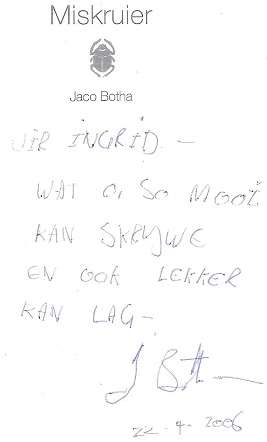 Miskruier
Jaco Botha
VIR INGRID —
WAT SO MOOI
KAN SKRYWE
EN OOK LEKKER
KAN LAG —
J Botha
22-4-2006